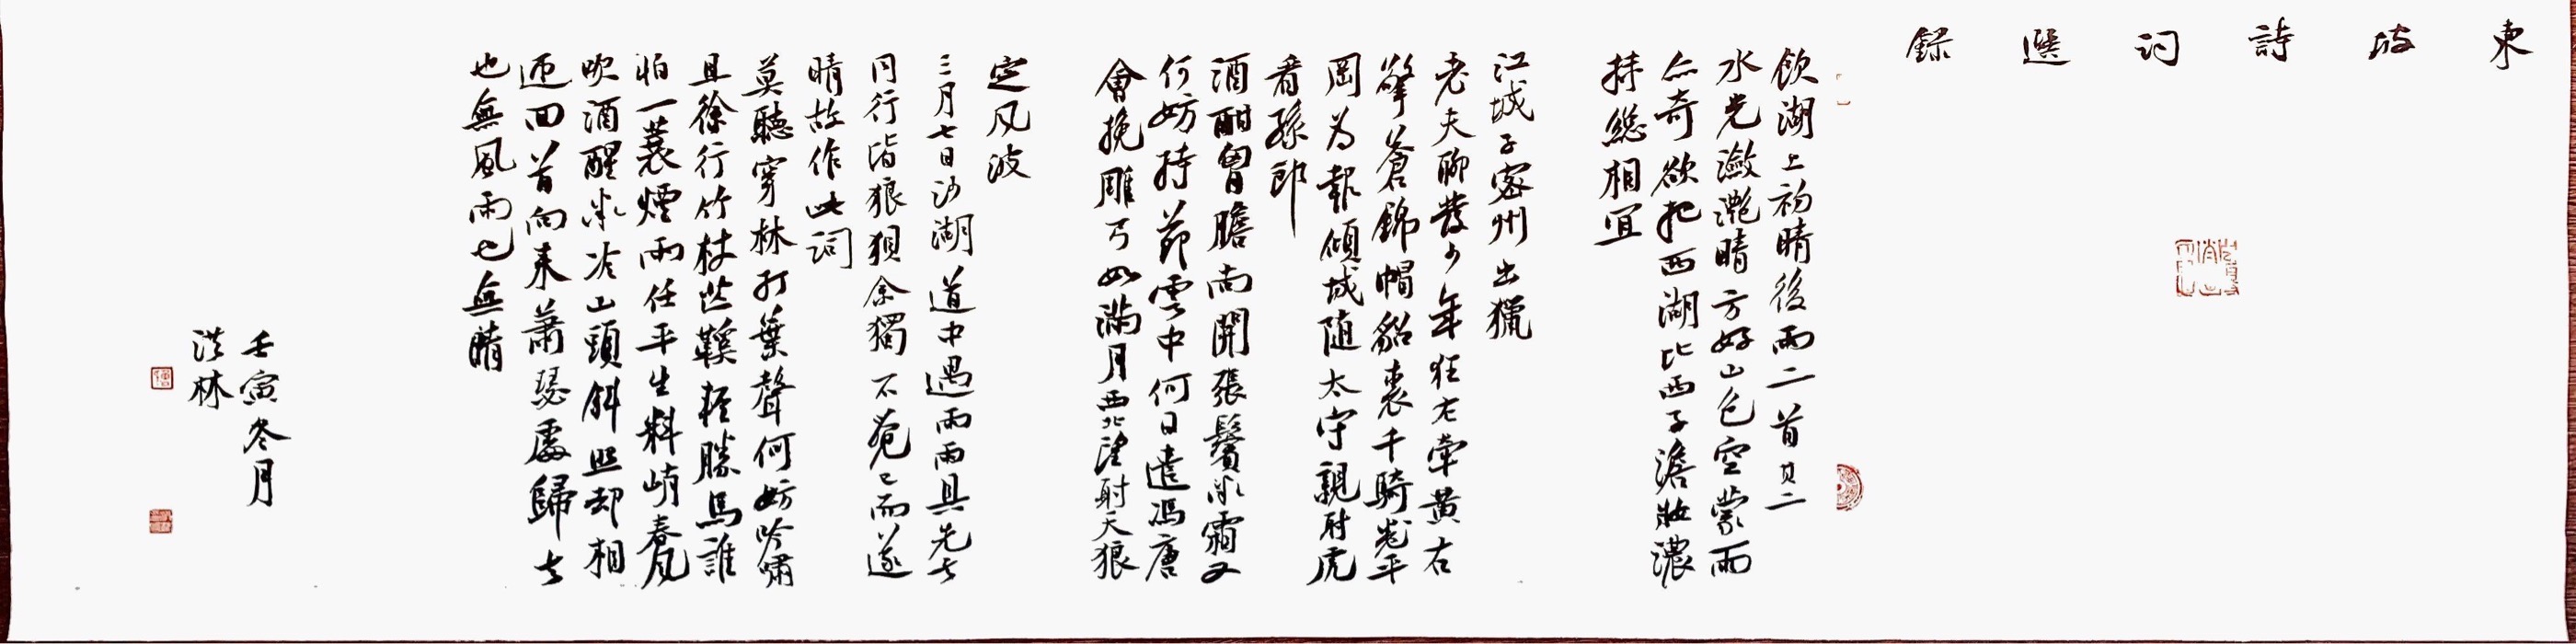 東坡詩詞選錄
飲湖上初晴後雨二首其二
水光瀲灧晴方好山色空蒙雨
亦奇欲把西湖比西子澹妝濃
抹總相宜
江城子密州出獵
老夫聊發少年狂左牽黃右
擎蒼錦帽貂裘千騎卷平
岡為報傾城隨太守親射虎
看孫郎
酒酣胷膽尚開張鬢微霜又
何妨持節雲中何日遣馮唐
會挽雕弓如滿月西北望射天狼
定风波
三月七日沙湖道中遇雨雨具先去
同行皆狼狽余獨不覺已而遂
晴故作此詞
莫聽穿林打葉聲何妨吟嘯
且徐行竹杖芒鞵輕勝馬誰
怕一蓑煙雨任平生料峭春风
吹酒醒微冷山頭斜照却相
迎回首向来蕭瑟處歸去
也無風雨也無晴
壬寅冬月
洪林